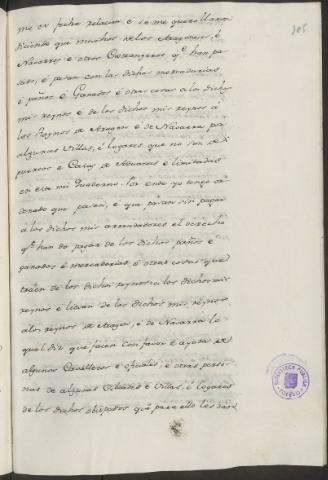 305
me es fecha relacion e se me querellaron
diciendo que muchos de los Aragoneses, é
Navarros e otros Extrangeros qe han pa
sado, é pasan con las dichas mercadurias
é paños é Ganados é otras cosas a los dichos
mis reynos e de los dichos mis reynos á
los Reynos de Aragon é de Navarra por
algunas Villas, é lugares que no son de
puertos e Casas de Aduanas e limitadas
en este mi Quaderno. Por ende yo tengo or
denado que pasan, e que pasan sin pagar
a los dichos mis arrendadores el derecho
qe han de pagar de los dichos paños é
ganados é mercadurias, é otras cosas que
traen de los dichos reynos a los dichos mis
reynos é lievan de los dichos mis reynos
a los reynos de Aragon, é de Navarra lo
qual diz que facen con favor e ayuda de
algunos Cavalleros e oficiales, e otras perso
nas de algunas Cibdades e Villas, é lugares
de los dichos obispados que para ello les dan
BIBLIOTECA PUBLICA
TOLEDO